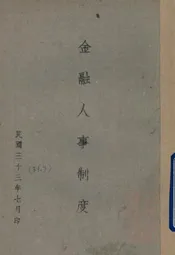 金融人事制度
民國三十三年七月印